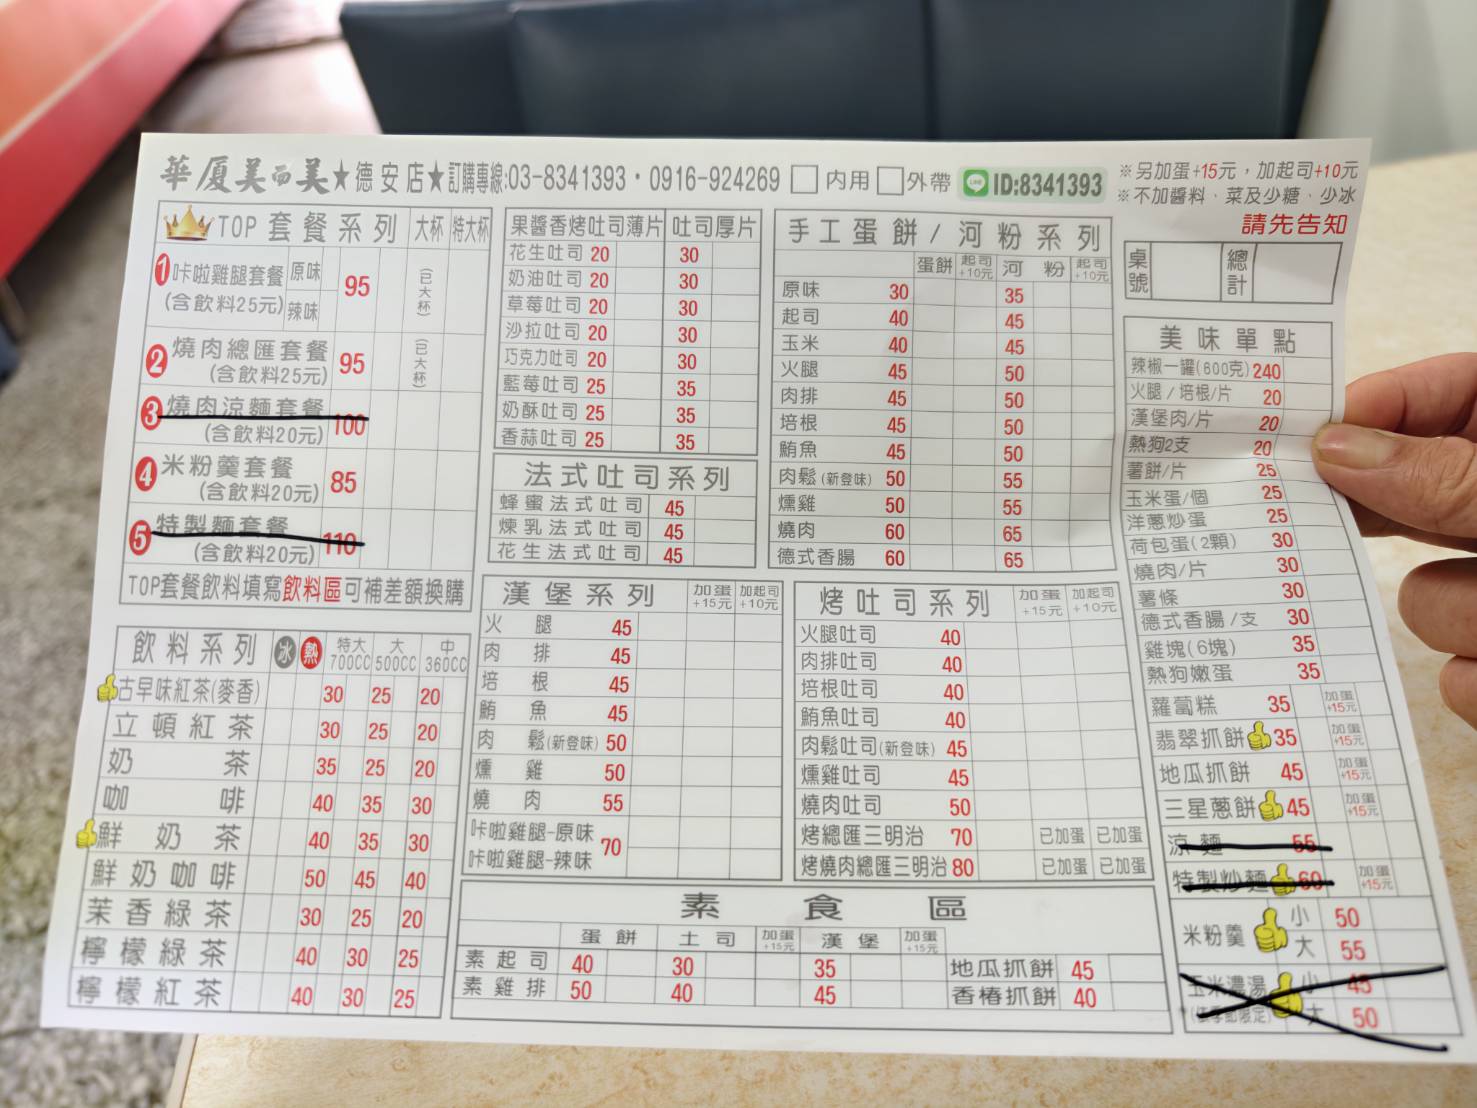 華厦美而美★德安店★訂購專線:03-8341393・0916-924269 □內用 □外帶 LINE ID:8341393
※另加蛋+15元，加起司+10元
※不加醬料、菜及少糖、少冰
請先告知
桌號 總計
TOP 套餐系列 大杯 特大杯
1 咔啦雞腿套餐 原味 95 (已大杯)
(含飲料25元) 辣味
2 燒肉總匯套餐 95 (已大杯)
(含飲料25元)
3 燒肉涼麵套餐 100
(含飲料20元)
4 米粉羹套餐 85
(含飲料20元)
5 特製麵套餐 110
(含飲料20元)
TOP套餐飲料填寫飲料區可補差額換購
飲料系列 冰 熱 特大700CC 大500CC 中360CC
古早味紅茶(麥香) 30 25 20
立頓紅茶 30 25 20
奶茶 35 25 20
咖啡 40 35 30
鮮奶茶 40 35 30
鮮奶咖啡 50 45 40
茉香綠茶 30 25 20
檸檬綠茶 40 30 25
檸檬紅茶 40 30 25
果醬香烤吐司薄片 吐司厚片
花生吐司 20 30
奶油吐司 20 30
草莓吐司 20 30
沙拉吐司 20 30
巧克力吐司 20 30
藍莓吐司 25 35
奶酥吐司 25 35
香蒜吐司 25 35
法式吐司系列
蜂蜜法式吐司 45
煉乳法式吐司 45
花生法式吐司 45
漢堡系列 加蛋+15元 加起司+10元
火腿 45
肉排 45
培根 45
鮪魚 45
肉鬆(新登味) 50
燻雞 50
燒肉 55
咔啦雞腿-原味 70
咔啦雞腿-辣味
手工蛋餅/河粉系列
蛋餅 起司+10元 河粉 起司+10元
原味 30 35
起司 40 45
玉米 40 45
火腿 45 50
肉排 45 50
培根 45 50
鮪魚 45 50
肉鬆(新登味) 50 55
燻雞 50 55
燒肉 60 65
德式香腸 60 65
烤吐司系列 加蛋+15元 加起司+10元
火腿吐司 40
肉排吐司 40
培根吐司 40
鮪魚吐司 40
肉鬆吐司(新登味) 45
燻雞吐司 45
燒肉吐司 50
烤總匯三明治 70 已加蛋 已加蛋
烤燒肉總匯三明治 80 已加蛋 已加蛋
素食區
蛋餅 土司 加蛋+15元 漢堡 加蛋+15元
素起司 40 30 35 地瓜抓餅 45
素雞排 50 40 45 香椿抓餅 40
美味單點
辣椒一罐(600克) 240
火腿/培根/片 20
漢堡肉/片 20
熱狗2支 20
薯餅/片 25
玉米蛋/個 25
洋蔥炒蛋 25
荷包蛋(2顆) 30
燒肉/片 30
薯條 30
德式香腸/支 30
雞塊(6塊) 35
熱狗嫩蛋 35
蘿蔔糕 35 加蛋+15元
翡翠抓餅 35 加蛋+15元
地瓜抓餅 45 加蛋+15元
三星蔥餅 45 加蛋+15元
涼麵 55
特製炒麵 60 加蛋+15元
米粉羹 小 50
大 55
玉米濃湯 小 45
*(依季節限定) 大 50